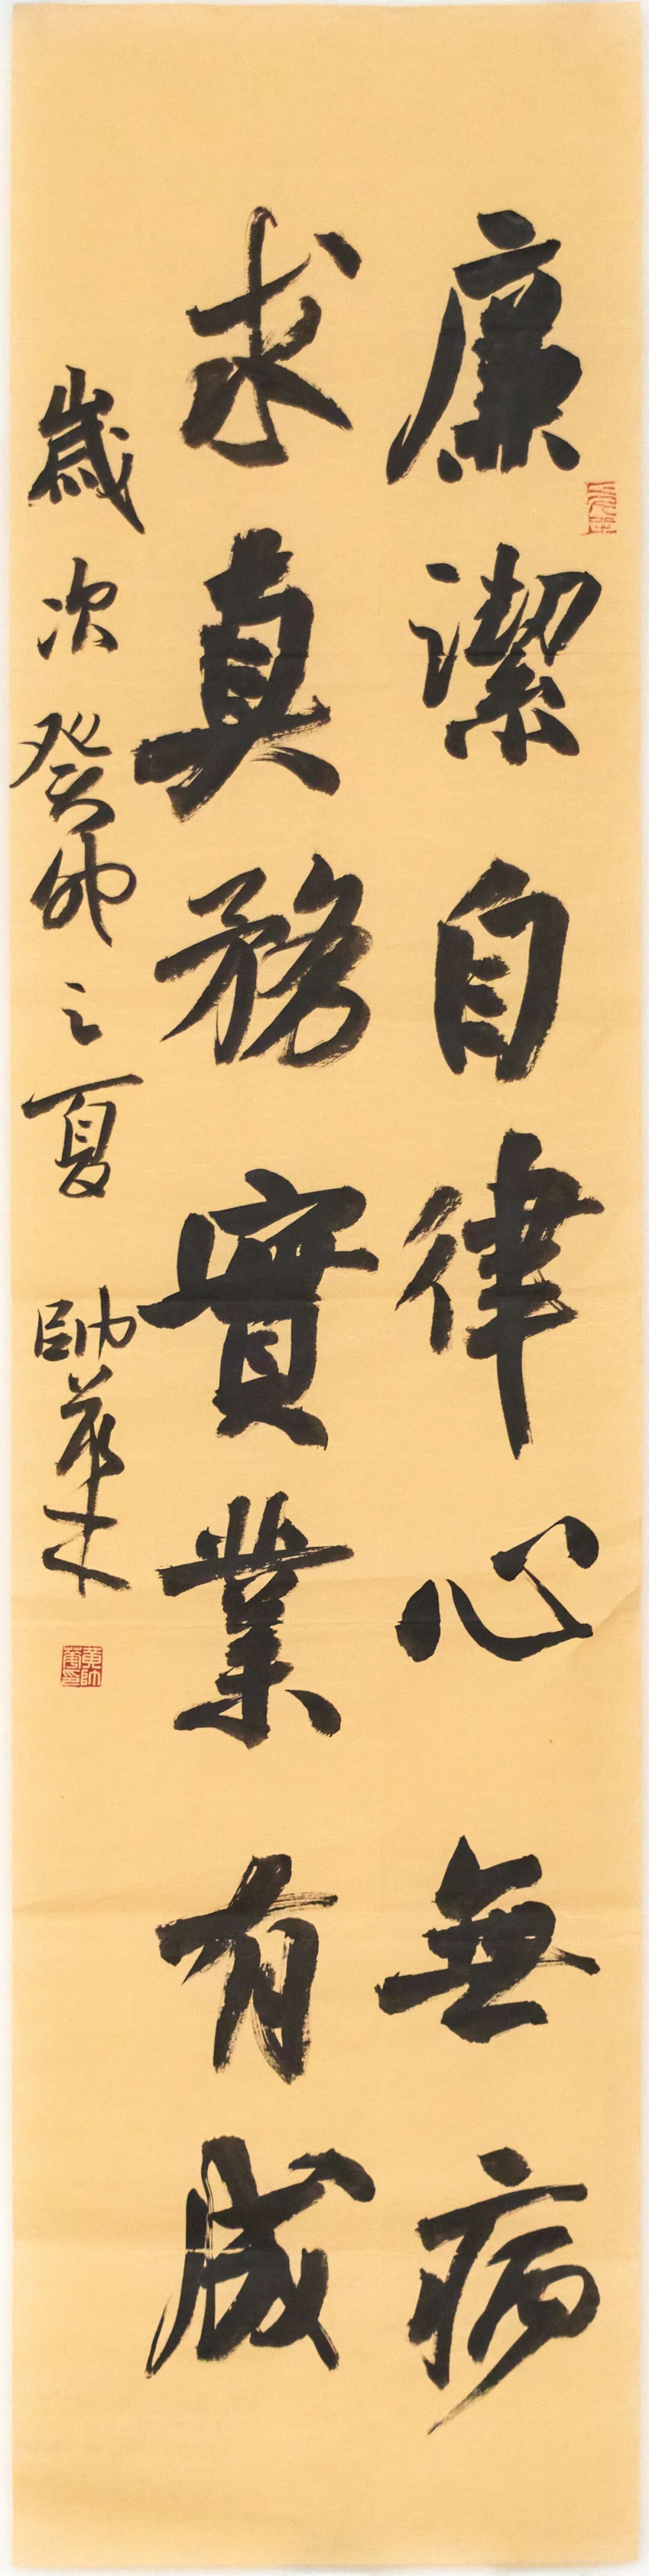 廉潔自律心無病
求真務實業有成
歲次癸卯之夏 帥